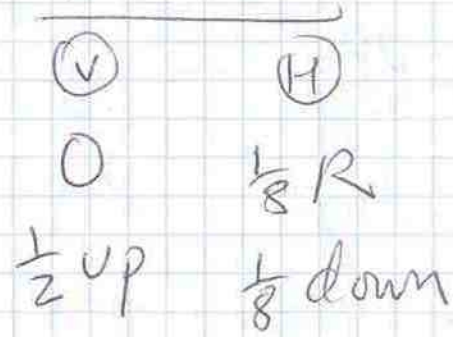 V H
0 1/8 R
1/2 up 1/8 down